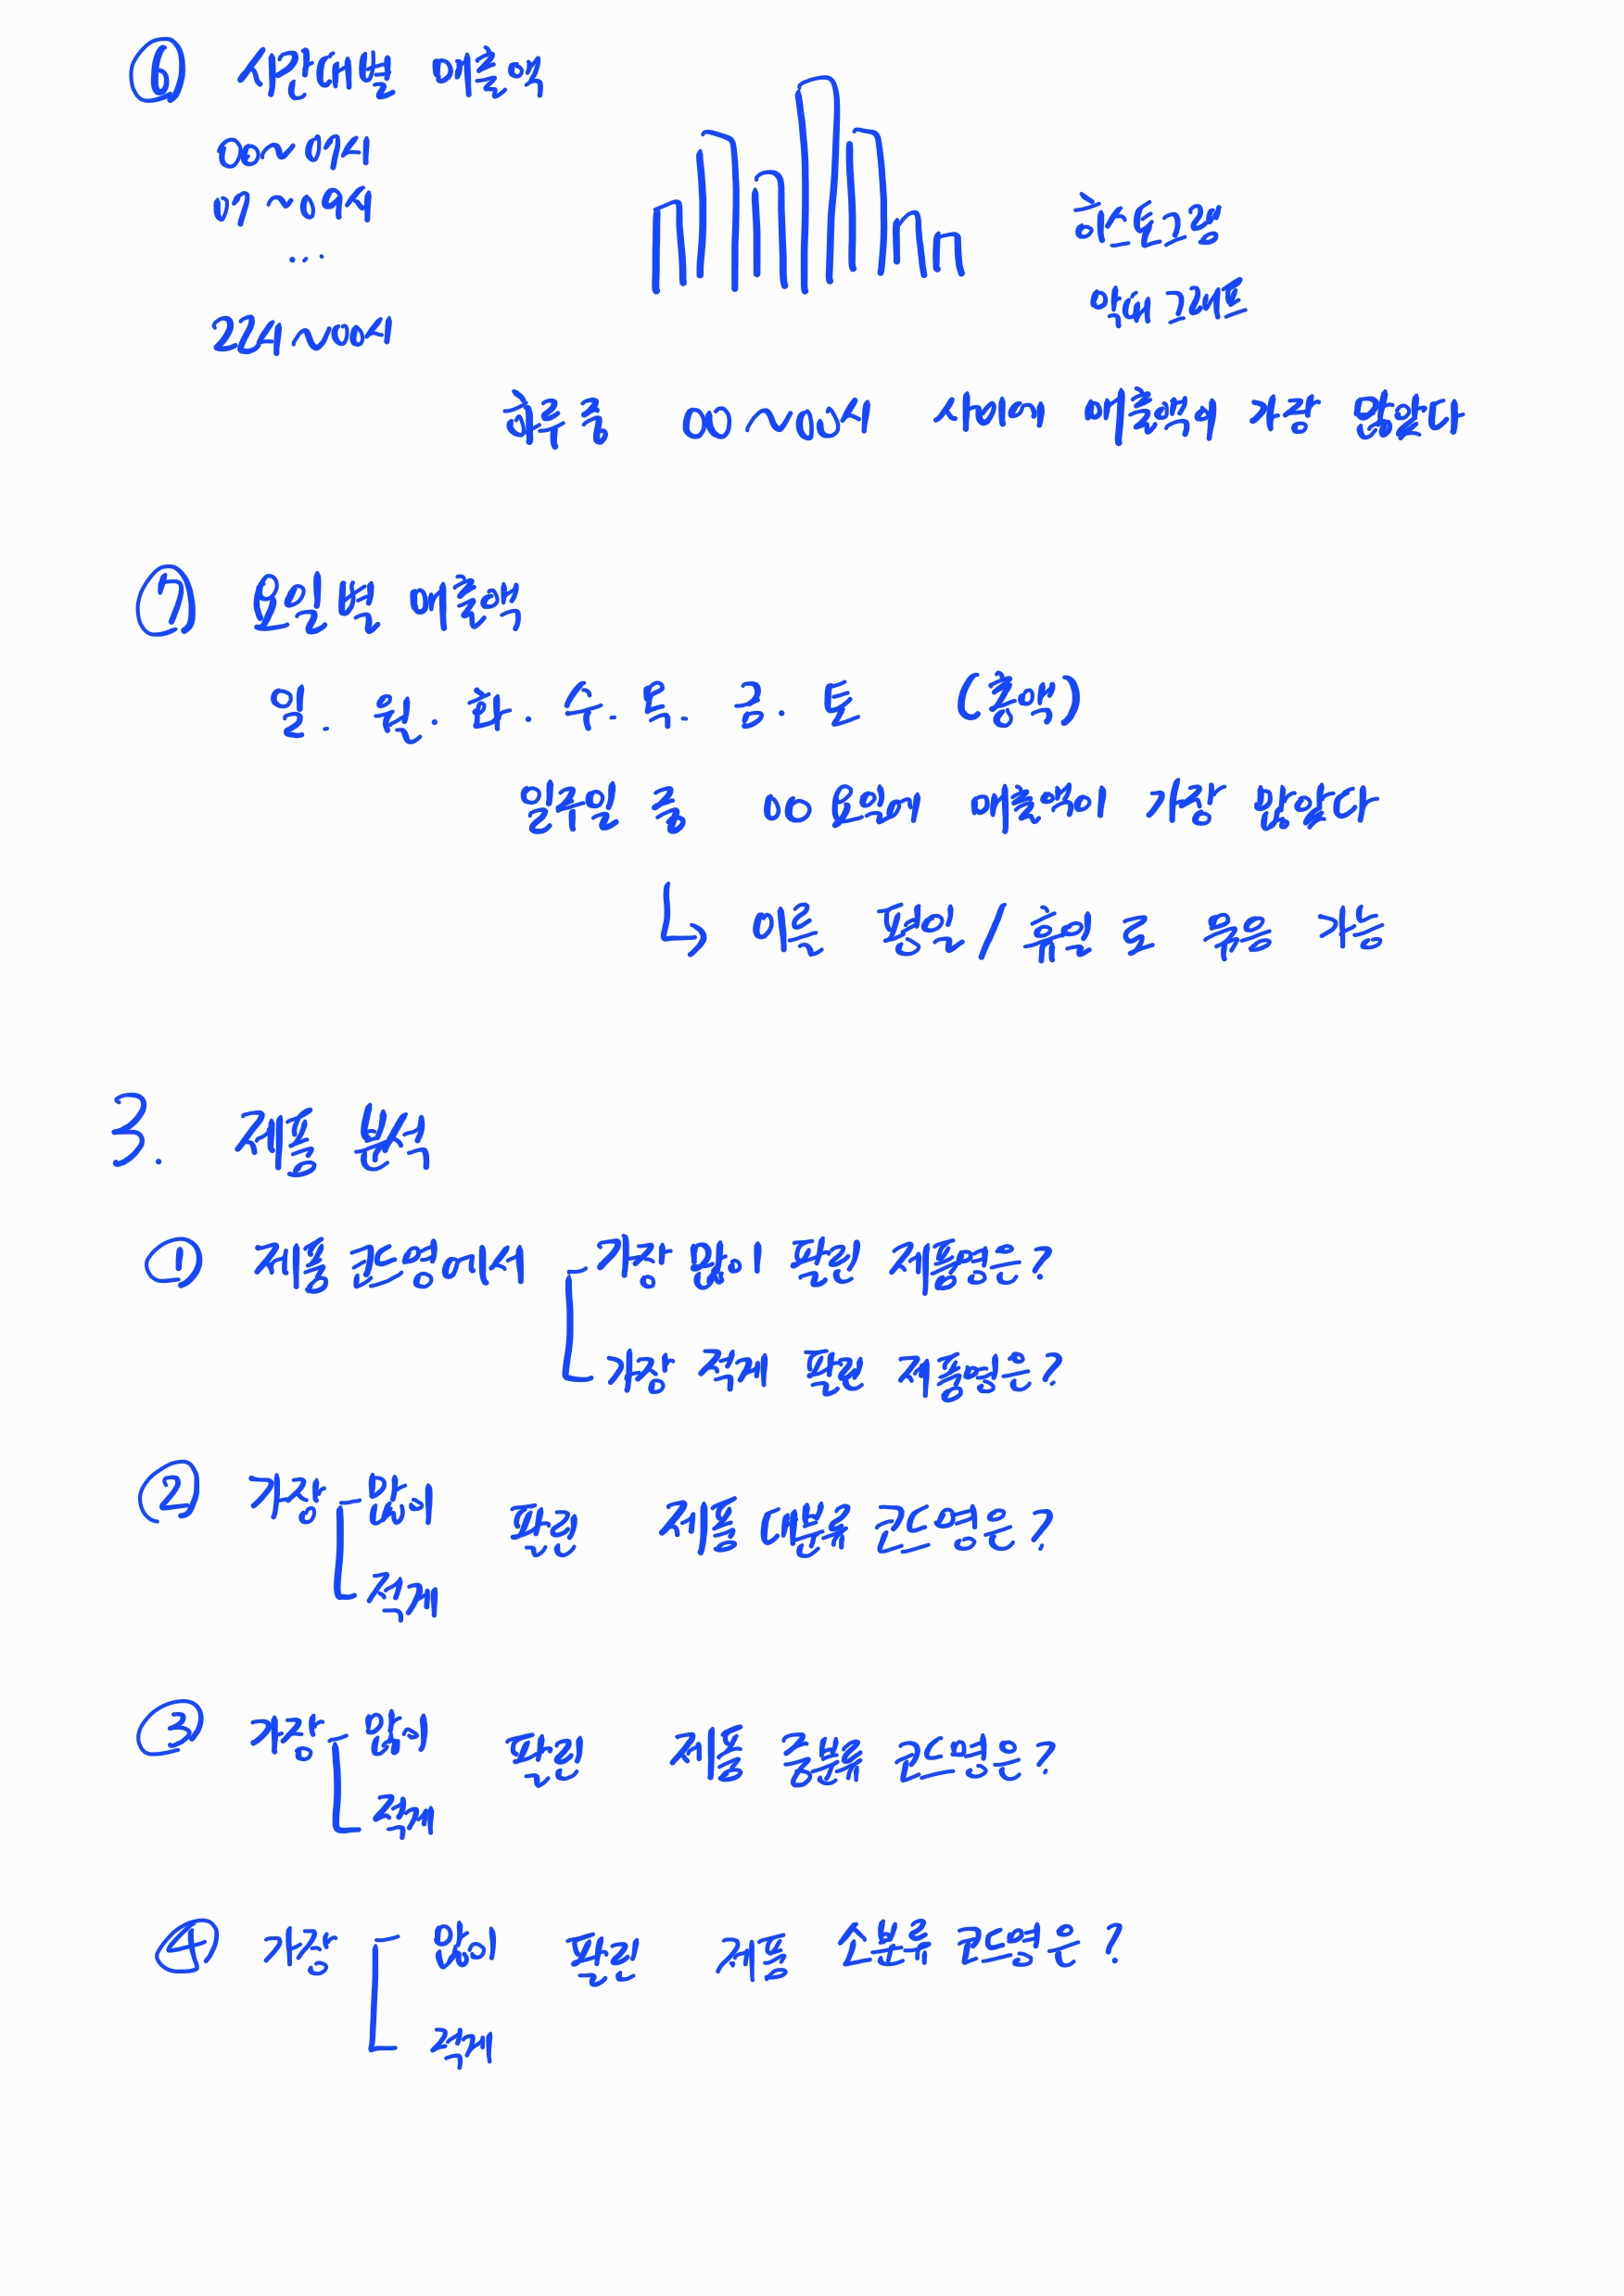 ⑥ 시간대별 매출액
00~07시
07~09시
...
22시~00시
히스토그램
막대 그래프
하루 중 00~00시 사이에 매출액이 가장 많았다
⑦ 요일별 매출액
일. 월. 화. 수. 목. 금. 토 (총액)
일주일 중 00요일이 매출액이 가장 많았다
↳ 이를 평일/휴일로 묶음 가능
3. 제품 분석
① 제품 코드명에서 가장 많이 팔린 제품명은?
가장 적게 팔린 제품명은?
② 가장 많이 팔린 제품 대분류 코드명은?
적게
③ 가장 많이 팔린 제품 중분류 코드명은?
적게
④ 가장 많이 팔린 제품 소분류 코드명은?
적게